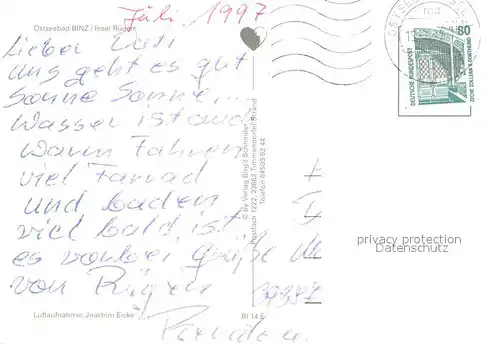 Juli 1997
Ostseebad BINZ / Insel Rügen
Lieber
uns geht es gut
Sonne Sonne....
Wasser ist auch
warm Fahren
viel Farrad
und baden
viel bald ist
es vorbei Grüße
von Rügen
Luftaufnahme: Joachim Eicke
BI 14 E
© by Verlag Birgit Schneider
Postfach 1222, 23662 Timmendorfer Strand
Telefon 04503/62 44
OSTSEEBAD
80
DEUTSCHE BUNDESPOST
privacy protection
Datenschutz